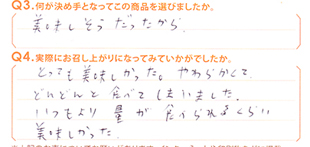 Q3.何が決め手となってこの商品を選びましたか。
美味しそうだったから
Q4.実際にお召し上がりになってみていかがでしたか。
とっても美味しかった。やわらかくて、
どんどんと食べてしまいました。
いつもより量が食べられるくらい
美味しかった。